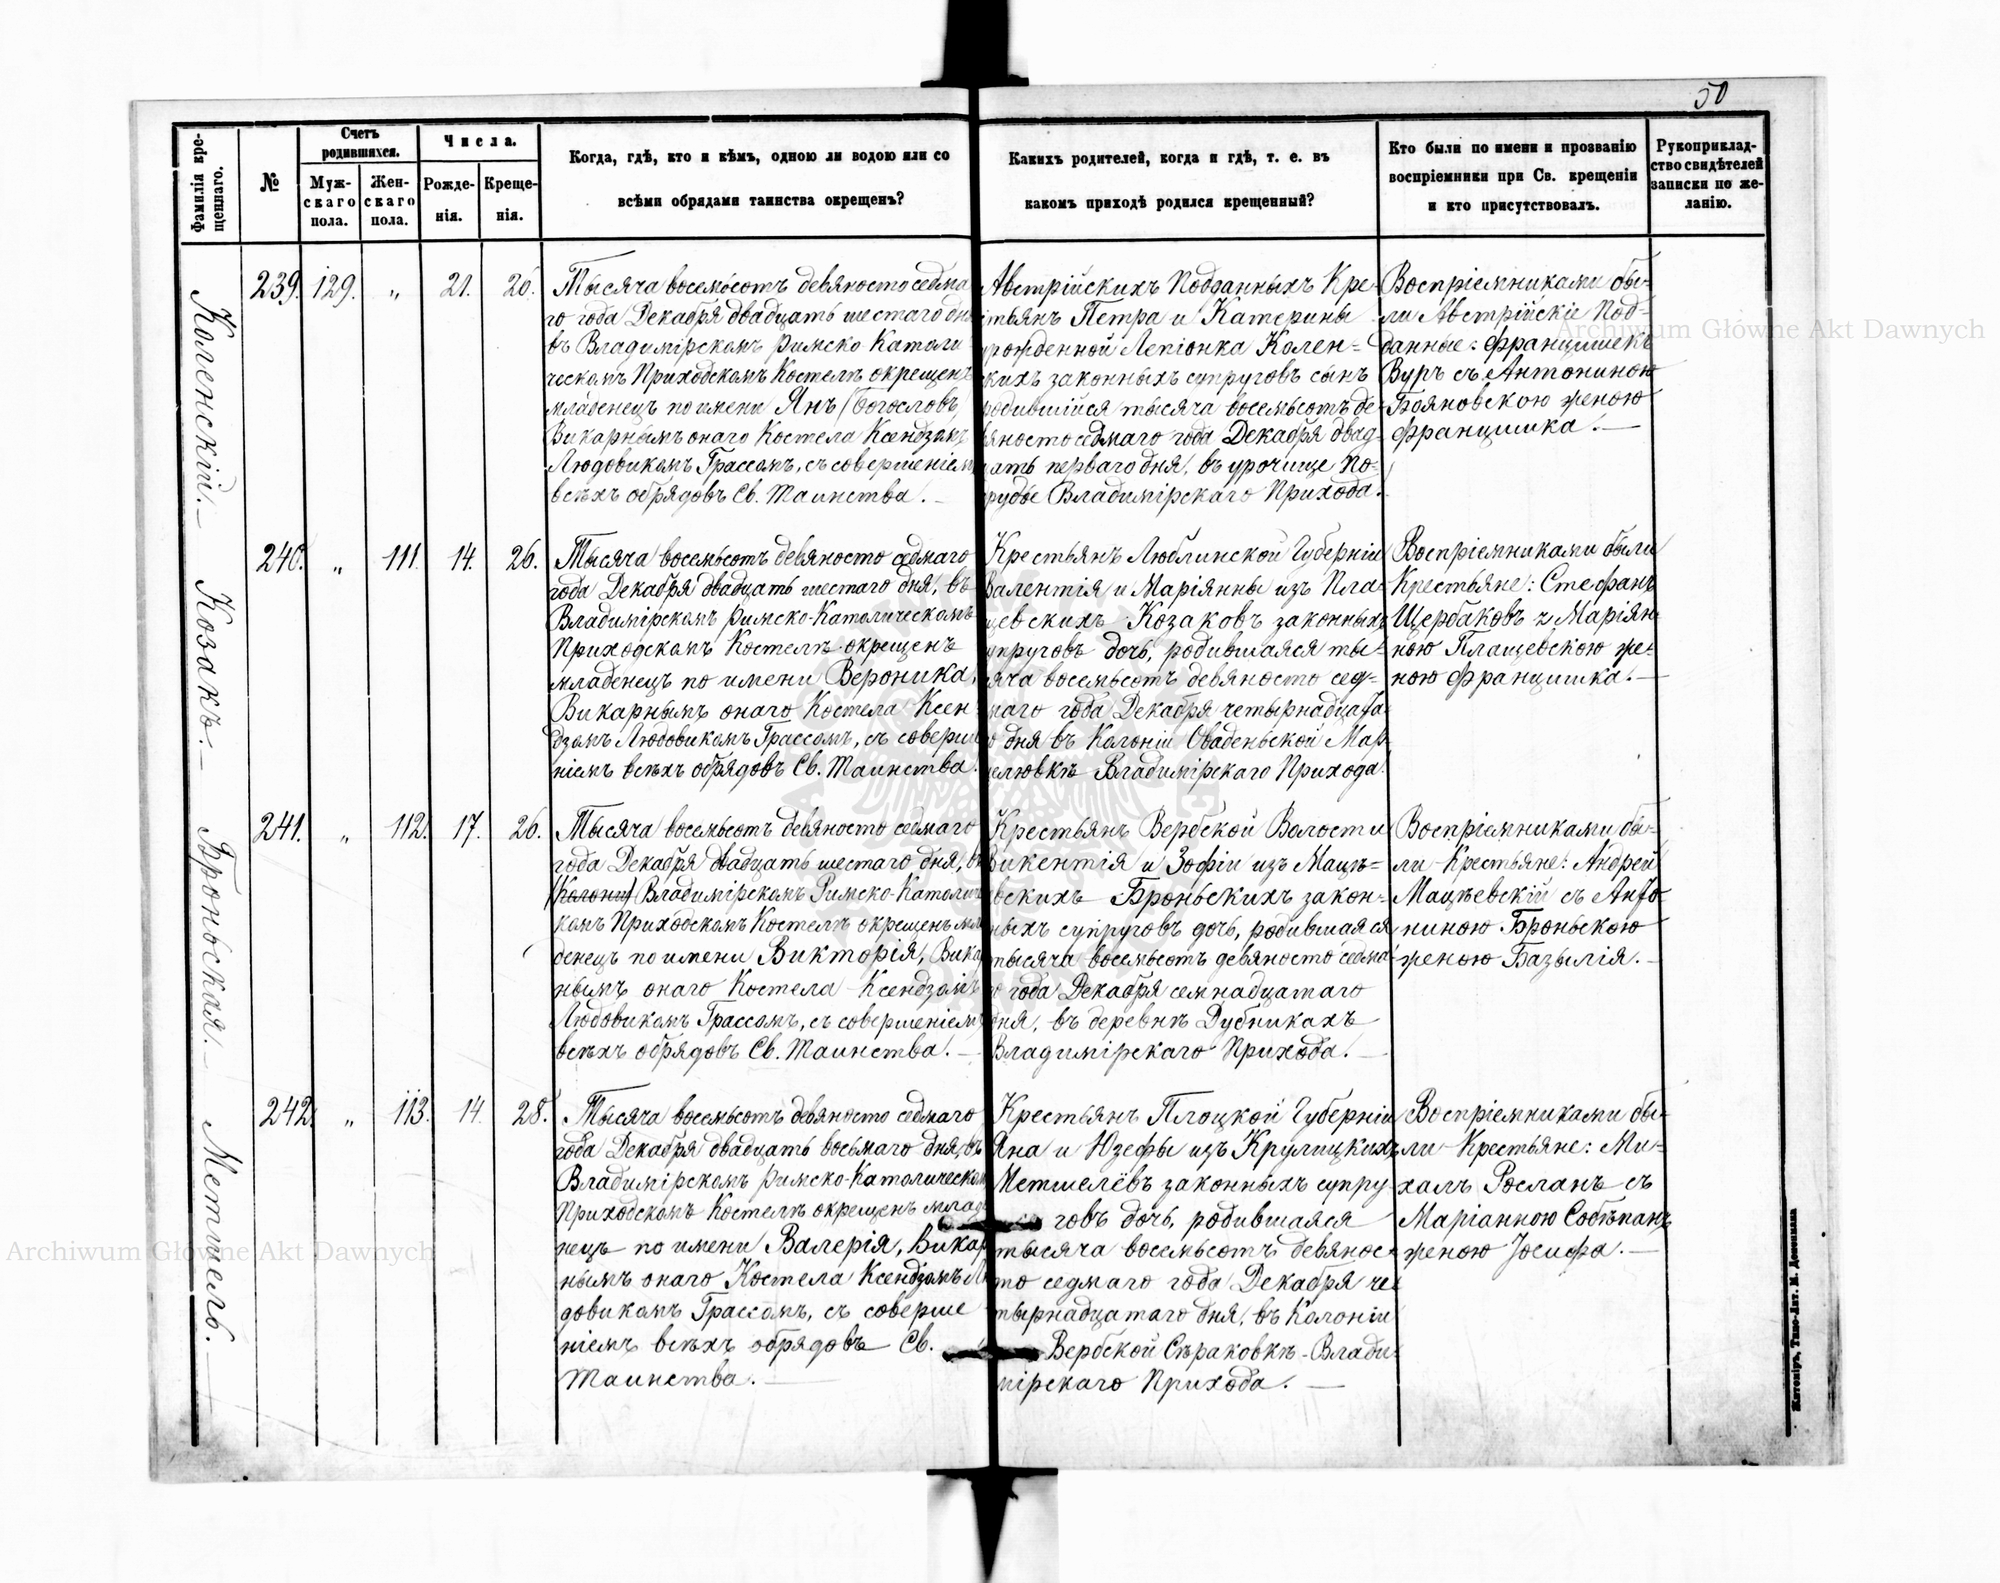 50
Фамилія кре-
щеннаго.
№
Счетъ
родившихся.
Муж-
скаго
пола.
Жен-
скаго
пола.
Числа.
Рожде-
нія.
Креще-
нія.
Когда, гдѣ, кто и кѣмъ, одною ли водою или со
всѣми обрядами таинства окрещенъ?
Какихъ родителей, когда и гдѣ, т. е. въ
какомъ приходѣ родился крещенный?
Кто были по имени и прозванію
воспріемники при Св. крещеніи
и кто присутствовалъ.
Рукоприклад-
ство свидѣтелей
записки по же-
ланію.
Коленскій.
239. 129. „ 21. 26.
Тысяча восемьсотъ девяносто седма
го года Декабря двадцать шестаго дня
въ Владимірскомъ Римско-Католи
ческомъ Приходскомъ Костелѣ окрещенъ
младенецъ по имени Янъ (Богословъ)
Викарнымъ онаго Костела Ксендзомъ
Людовикомъ Грассомъ, съ совершеніемъ
всѣхъ обрядовъ Св. Таинства.
Австрійскихъ Подданныхъ Кре-
стьянъ Петра и Катерины
урожденной Лепіонка Колен-
скихъ законныхъ супруговъ сынъ
родившійся тысяча восемьсотъ де-
вяносто седмаго года Декабря двад-
цать перваго дня, въ урочище По-
рубѣ Владимірскаго Прихода.
Воспріемниками бы-
ли Австрійскіе Под-
данные: Францишекъ
Вуръ съ Антониною
Бояновскою женою
Францишка.
Козакъ.
240. „ 111. 14. 26.
Тысяча восемьсотъ девяносто седмаго
года Декабря двадцать шестаго дня, въ
Владимірскомъ Римско-Католическомъ
Приходскомъ Костелѣ окрещенъ
младенецъ по имени Вероника,
Викарнымъ онаго Костела Ксен-
дзомъ Людовикомъ Грассомъ, съ соверше
ніемъ всѣхъ обрядовъ Св. Таинства.
Крестьянъ Люблинской Губерніи
Валентія и Маріянны изъ Пла-
щевскихъ Козаковъ законныхъ
супруговъ дочь, родившаяся ты-
сяча восемьсотъ девяносто сед-
маго года Декабря четырнадцата
го дня въ Колоніи Оваденьской Мар
целювкѣ Владимірскаго Прихода.
Воспріемниками были
Крестьяне: Стефанъ
Щербаковъ с Маріян
ною Плащевскою же-
ною Францишка.
Броньская.
241. „ 112. 17. 26.
Тысяча восемьсотъ девяносто седмаго
года Декабря двадцать шестаго дня, въ
(Колоніи) Владимірскомъ Римско-Католичес
комъ Приходскомъ Костелѣ окрещенъ мла
денецъ по имени Викторія, Викар
нымъ онаго Костела Ксендзомъ
Людовикомъ Грассомъ, съ совершеніемъ
всѣхъ обрядовъ Св. Таинства.
Крестьянъ Вербской Волости
Викентія и Зофіи изъ Мацѣ-
евскихъ Броньскихъ закон-
ныхъ супруговъ дочь, родившаяся
тысяча восемьсотъ девяносто седма
го года Декабря семнадцатаго
дня, въ деревнѣ Дубникахъ
Владимірскаго Прихода.
Воспріемниками бы-
ли Крестьяне: Андрей
Мацѣевскій съ Анто-
ниною Броньскою
женою Базылія.
Метшель.
242. „ 113. 14 28.
Тысяча восемьсотъ девяносто седмаго
года Декабря двадцать восьмаго дня, въ
Владимірскомъ Римско-Католическомъ
Приходскомъ Костелѣ окрещенъ младе
нецъ по имени Валерія, Викар
нымъ онаго Костела Ксендзомъ Лю
довикомъ Грассомъ, съ соверше
ніемъ всѣхъ обрядовъ Св.
Таинства.
Крестьянъ Плоцкой Губерніи
Яна и Юзефы изъ Крулицкихъ
Метшелёвъ законныхъ супру-
говъ дочь, родившаяся
тысяча восемьсотъ девянос-
то седмаго года Декабря че
тырнадцатаго дня, въ Колоніи
Вербской Сѣраковкѣ Влади-
мірскаго Прихода.
Воспріемниками бы-
ли Крестьяне: Ми-
халъ Росланъ съ
Маріанною Собѣпанъ
женою Іосифа.
Житоміръ, Типо-Лит. М. Дененмана
Archiwum Główne Akt Dawnych
Archiwum Główne Akt Dawnych